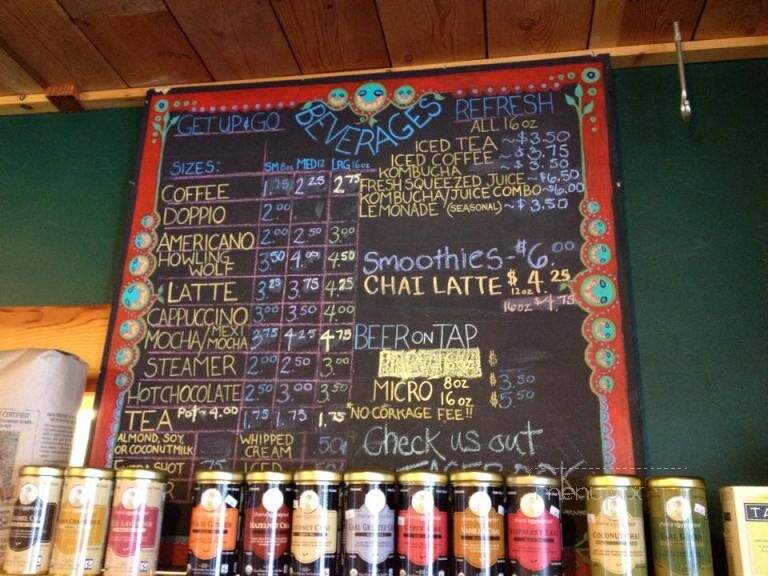 BEVERAGES
GET UP & GO
SIZES: SM 8oz MED 12 LRG 16oz
COFFEE 1.75 2.25 2.75
DOPPIO 2.00
AMERICANO 2.00 2.50 3.00
HOWLING WOLF 3.50 4.00 4.50
LATTE 3.25 3.75 4.25
CAPPUCCINO 3.00 3.50 4.00
MOCHA/MEXI MOCHA 3.75 4.25 4.75
STEAMER 2.00 2.50 3.00
HOT CHOCOLATE 2.50 3.00 3.50
TEA Pot ~ 4.00 1.75 1.75 1.75
ALMOND, SOY, OR COCONUT MILK
WHIPPED CREAM .50
EXTRA SHOT .75 ICED
REFRESH
ALL 16 oz
ICED TEA ~ $3.50
ICED COFFEE ~ $3.75
KOMBUCHA ~ $3.50
FRESH SQUEEZED JUICE ~ $6.50
KOMBUCHA/JUICE COMBO ~ $6.00
LEMONADE (SEASONAL) ~ $3.50
Smoothies - $6.00
CHAI LATTE $4.25
12oz
16oz $4.75
BEER ON TAP
$
MICRO 8oz $3.50
16oz $5.50
*NO CORKAGE FEE!!
Check us out
HAZELNUT
EARL GREY
COCONUT CHAI